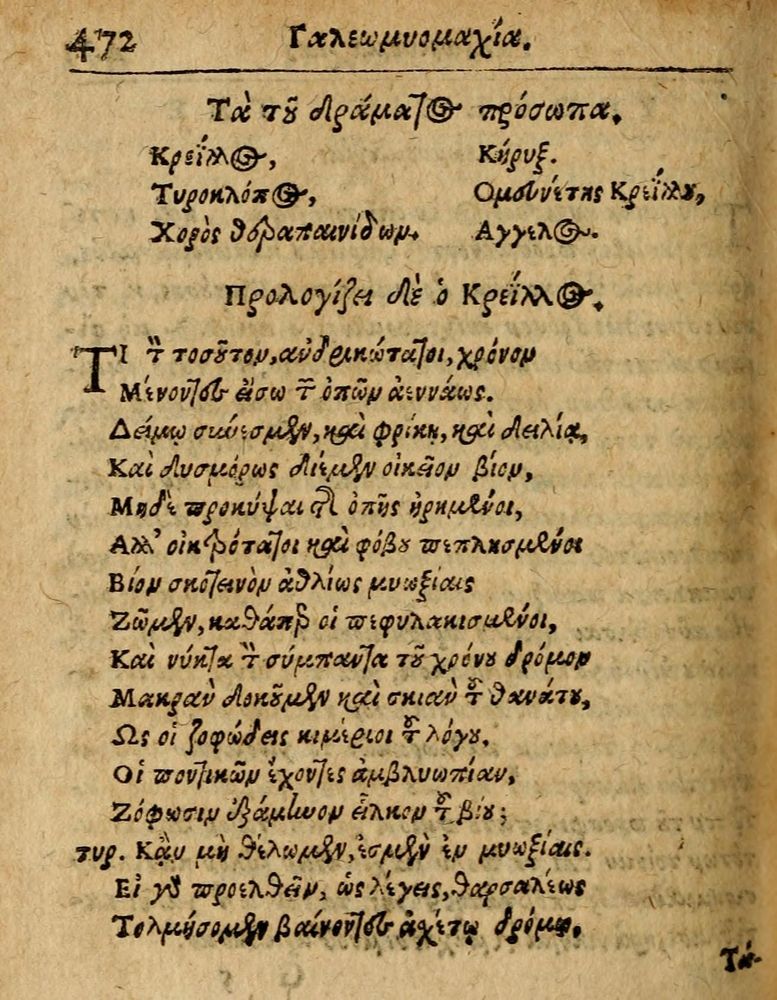 472 Γαλεωμυομαχία.
Τὰ τοῦ δράματος πρόσωπα.
Κρεΐλλος, Κήρυξ.
Τυροκλόπος, Ομευνέτης Κρεΐλλου,
Χορὸς θεραπαινίδων. Αγγελος.
Προλογίζει δὲ ὁ Κρεΐλλος.
ΤΙ τὸν τοσοῦτον, ἀνδρικώτατοι, χρόνον
Μένοντες εἴσω τῶν ὀπῶν ἀεννάως.
Δείμῳ σύνεσμεν, καὶ φρίκῃ, καὶ δειλίᾳ,
Καὶ δυσμόρως διέμεν οἰκεῖον βίον,
Μηδὲ προκύψαι τῆς ὀπῆς ᾑρημένοι,
Αλλ' οἰκτρότατοι καὶ φόβου πεπλησμένοι
Βίον σκοτεινὸν ἀθλίως μυωξίαις
Ζῶμεν, καθάπερ οἱ πεφυλακισμένοι,
Καὶ νύκτα τὸν σύμπαντα τοῦ χρόνου δρόμον
Μακρὰν δοκοῦμεν καὶ σκιὰν τοῦ θανάτου,
Ως οἱ ζοφώδεις κιμέριοι τοῦ λόγου,
Οἱ ποντικῶν ἔχοντες ἀμβλυωπίαν,
Ζόφωσιν ἑξάμηνον εἷλκον τοῦ βίου;
τυρ. Κἂν μὴ θέλωμεν, ἐσμὲν ἐν μυωξίαις.
Εἰ γὰρ προελθεῖν, ὡς λέγεις, θαρσαλέως
Τολμήσομεν βαίνοντες ἀχέτῳ δρόμῳ.
Τά-